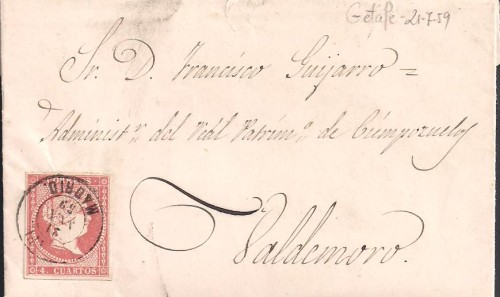 Getafe - 21-7-59
Sr. D. Francisco Guijarro =
Administr. del Rèál Patrim.º de Ciempozuelos
Valdemoro.
MADRID
21
59
4. CUARTOS